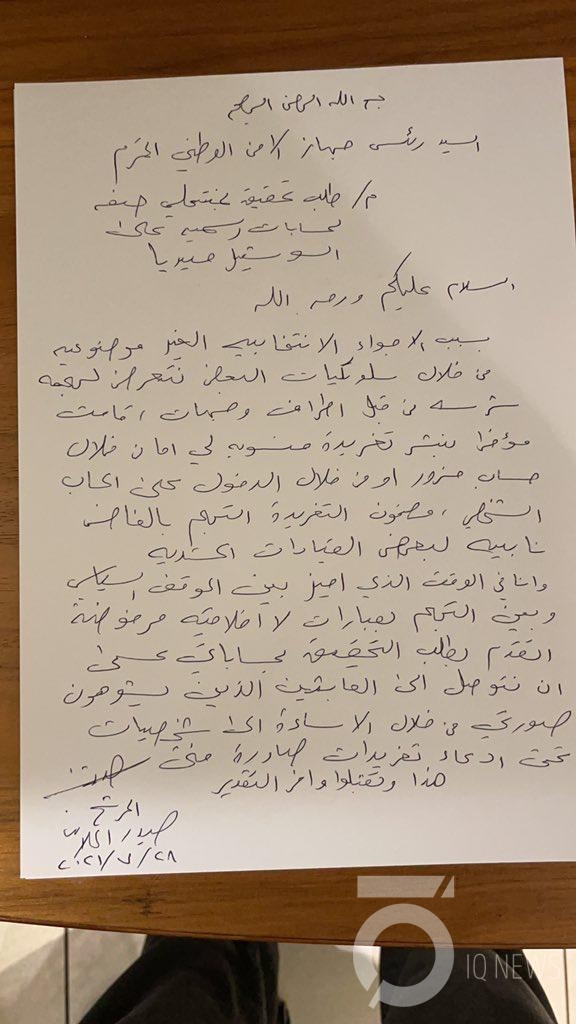 بسم الله الرحمن الرحيم
السيد رئيس جهاز الامن الوطني المحترم
م/ طلب تحقيق بمنتحلي صفه
لحسابات رسميه على
السوشيل ميديا
السلام عليكم ورحمه الله
بسبب الاجواء الانتخابيه الغير موضوعيه
من خلال سلوكيات البعض نتعرض لهجمه
شرسه من قبل اطراف وجهات ، قامت
مؤخرا بنشر تغريدة منسوبه لي اما من خلال
حساب مزور او من خلال الدخول على الحساب
الشخصي ، مضمون التغريدة التهجم بالفاض
نابيه لبعض القيادات الحشديه
وانا في الوقت الذي اميز بين الموقف السياسي
وبين التهجم بعبارات لا اخلاقيه مرفوضة
اتقدم بطلب التحقيق بحساباتي عسى
ان نتوصل الى العابثين الذين يشوهون
صورتي من خلال الاساءة الى شخصيات
تحت ادعاء تغريدات صادرة مني
هذا وتقبلوا وافر التقدير
المرشح
حيدر الملا
٢٠٢١/٧/٢٨
IQ NEWS